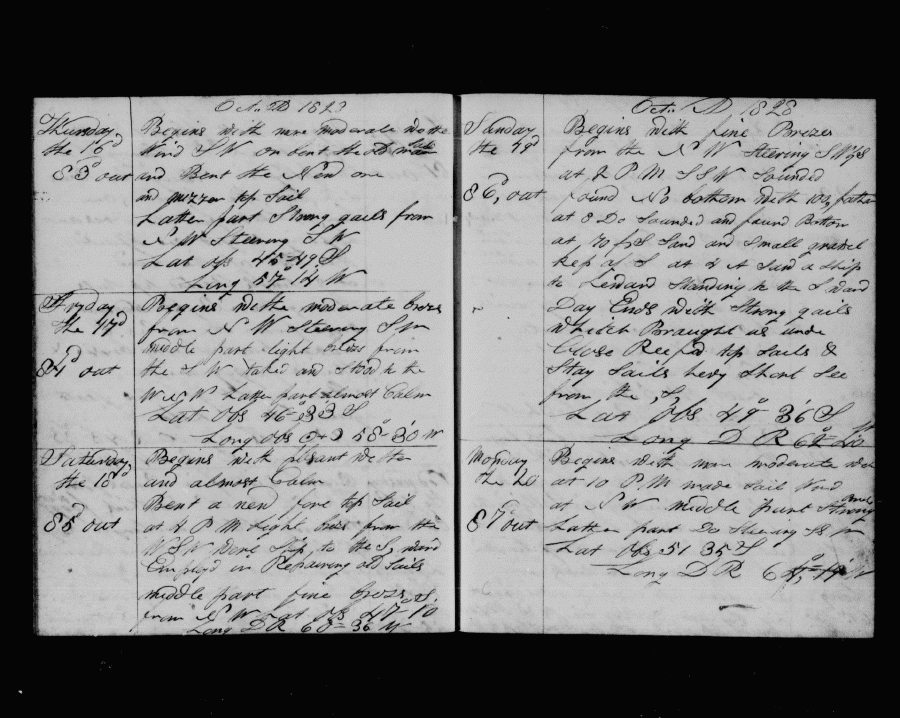 Oct. D 1823
Thursday
the 16d
83d out
Begins with more moderate Wethe
Wind S W on bent the old
and Bent the New one
and mizzen top Sail
Latter part Strong gails from
N W Steering S W
Lat obs 45-49 S
Long 57° 14 W
Fryday
the 17d
84d out
Begins with moderate brezes
from N W Steering S
middle part light brezes from
the S W taked and Stood to the
W N W Latter part almost Calm
Lat obs 46-33 S
Long obs 58-30 W
Saturday
the 18d
85d out
Begins with plesant wether
and almost Calm
Bent a new fore top Sail
at 4 P M Light brezes from the
W S W Ship to the S ward
Employd in Repairing old Sails
middle part fine brezes
from N W Lat obs 47-10 S.
Long D R 60-36 W
Oct. D 1823
Sunday
the 19d
86d, out
Begins with fine Brezes
from the N W Steering S W
at 2 P M S S W Sounded
found No bottom with
at 8 Do Sounded and found Bottom
at 70 Sand and Small gravel
Kep of S at 4 A Saw a Ship
to Leward Standing to the S ward
Day Ends with Strong gails
which Braught us unde
Close Reefd top Sails &
Stay Sails hevy Short See
from the S,
Lat obs 49° 36 S
Long D R
Monday
the 20
87d out
Begins with more moderate
at 10 P.M made Sail Wind
at N W middle part Strong
Latter part Do Steering
Lat obs 51 35 S
Long D R